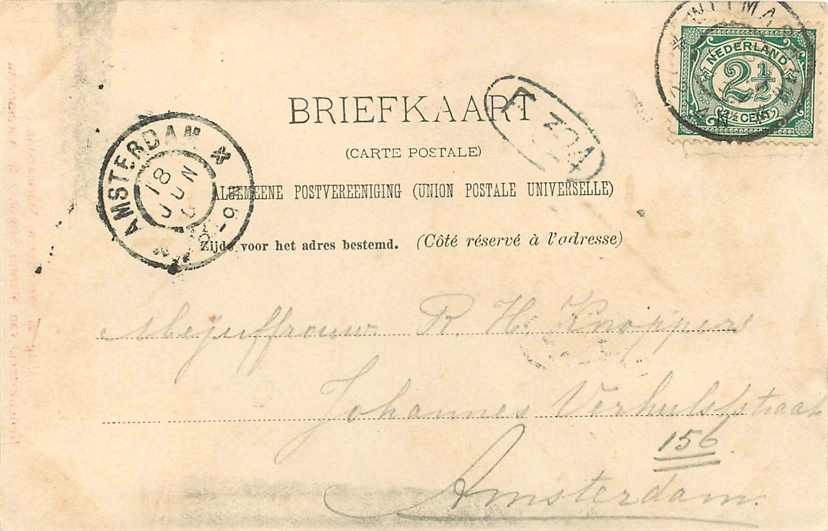 NEDERLAND
2½
(2½ CENT)
BRIEFKAART
(CARTE POSTALE)
ALGEMEENE POSTVEREENIGING (UNION POSTALE UNIVERSELLE)
Zijde voor het adres bestemd. (Côté réservé à l'adresse)
AMSTERDAM
18 JUN
Mejuffrouw R. H. Knoppers
Johannes Verhulststraat
156
Amsterdam.